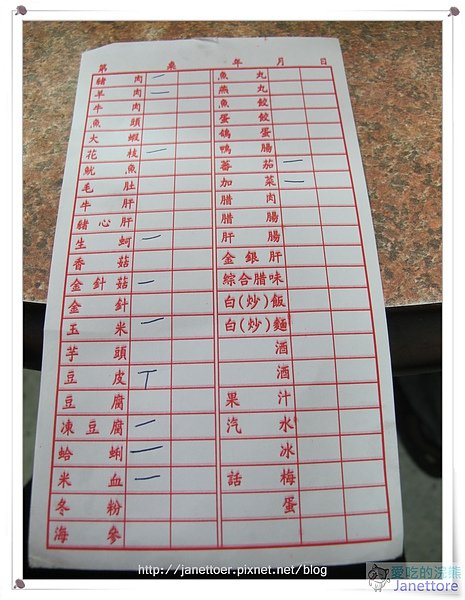 第 桌 年 月 日
豬肉 一
羊肉 一
牛肉
魚頭
大蝦
花枝 一
魷魚
毛肚
牛肝
豬心肝
生蚵 一
香菇
金針菇 一
金針
玉米 一
芋頭
豆皮 丅
豆腐
凍豆腐 一
蛤蜊 一
米血 一
冬粉
海參
魚丸
燕丸
魚餃
蛋餃
鴿蛋
鴨腸
蕃茄 一
加菜 一
腊肉
腊腸
肝腸
金銀肝
綜合腊味
白(炒)飯
白(炒)麵
酒
酒
果汁
汽水
冰
話梅
蛋
http://janettoer.pixnet.net/blog
愛吃的浣熊
Janettore